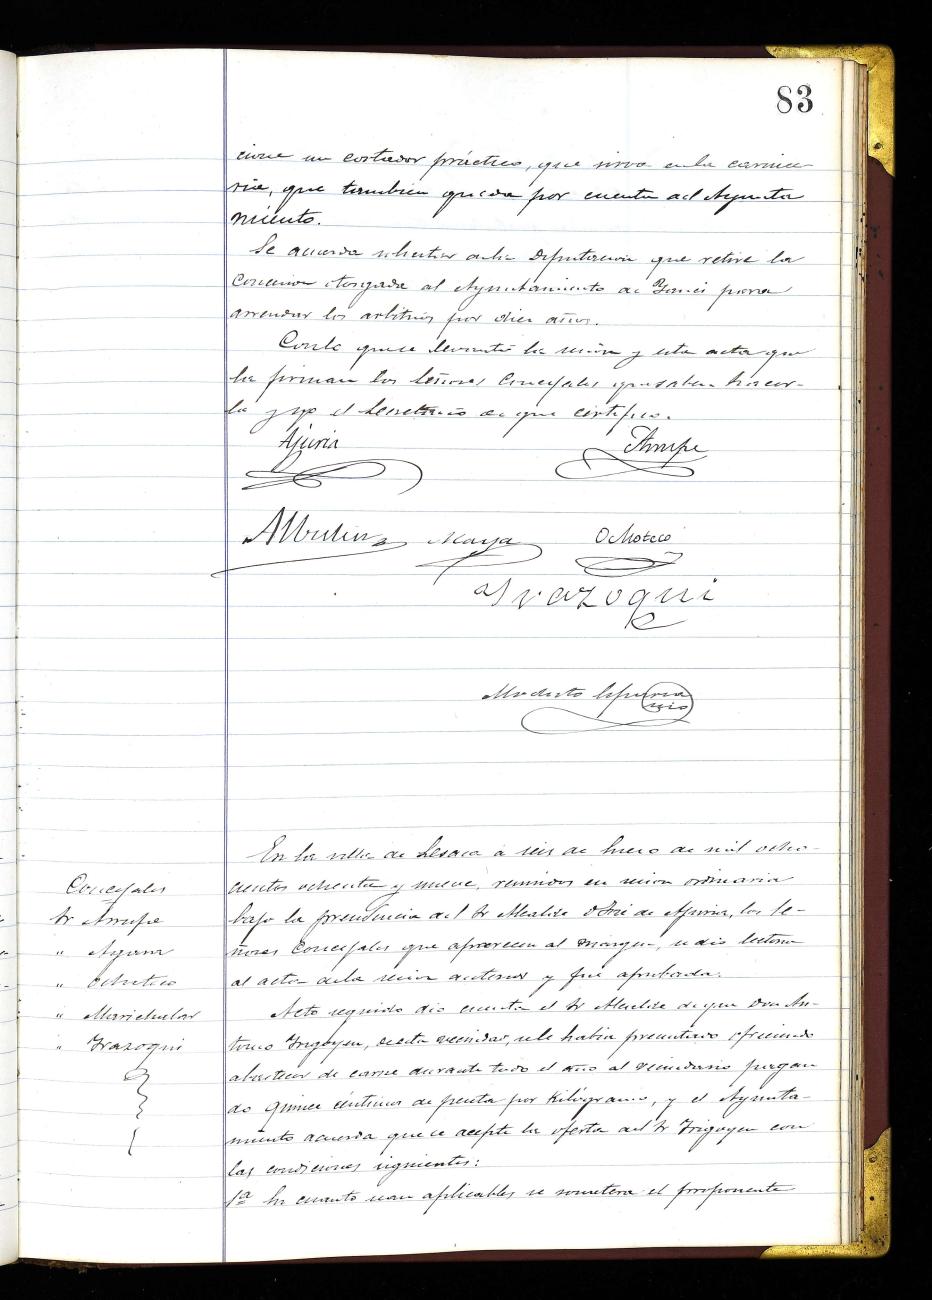 83
cione un cortador práctico, que sirva en la carnice
ria, que tambien queda por cuenta del Ayunta
miento.
Se acuerda solicitar de la Diputacion que retire la
concesion otorgada al Ayuntamiento de Yanci para
arrendar los arbitrios por diez años.
Con lo que se levantó la sesion y esta acta que
la firman los Señores Concejales que saben hacer-
lo y yo el Secretario de que certifico.
Ajuria Arrupe
Maya Ochoteco
Yrazoqui
Modesto
En la villa de Lesaca á seis de Enero de mil ocho-
cientos ochenta y nueve, reunidos en sesion ordinaria
bajo la presidencia del Sr Alcalde D José de Ajuria, los Se-
ñores Concejales que aparecen al margen, se dio lectura
al acta de la sesion anterior y fué aprobada.
Concejales
Sr Arrupe
" 
" Ochoteco
" Marichalar
" Yrazoqui
Acto seguido dio cuenta el Sr Alcalde de que Don An-
tonio Yrigoyen, de esta vecindad, se le habia presentado ofreciendo
abastecer de carne durante todo el año al vecindario pagan
do quince céntimos de peseta por Kilógramo, y el Ayunta-
miento acuerda que se acepte la oferta del Sr Yrigoyen con
las condiciones siguientes:
1ª En cuanto sean aplicables se someterá el proponente